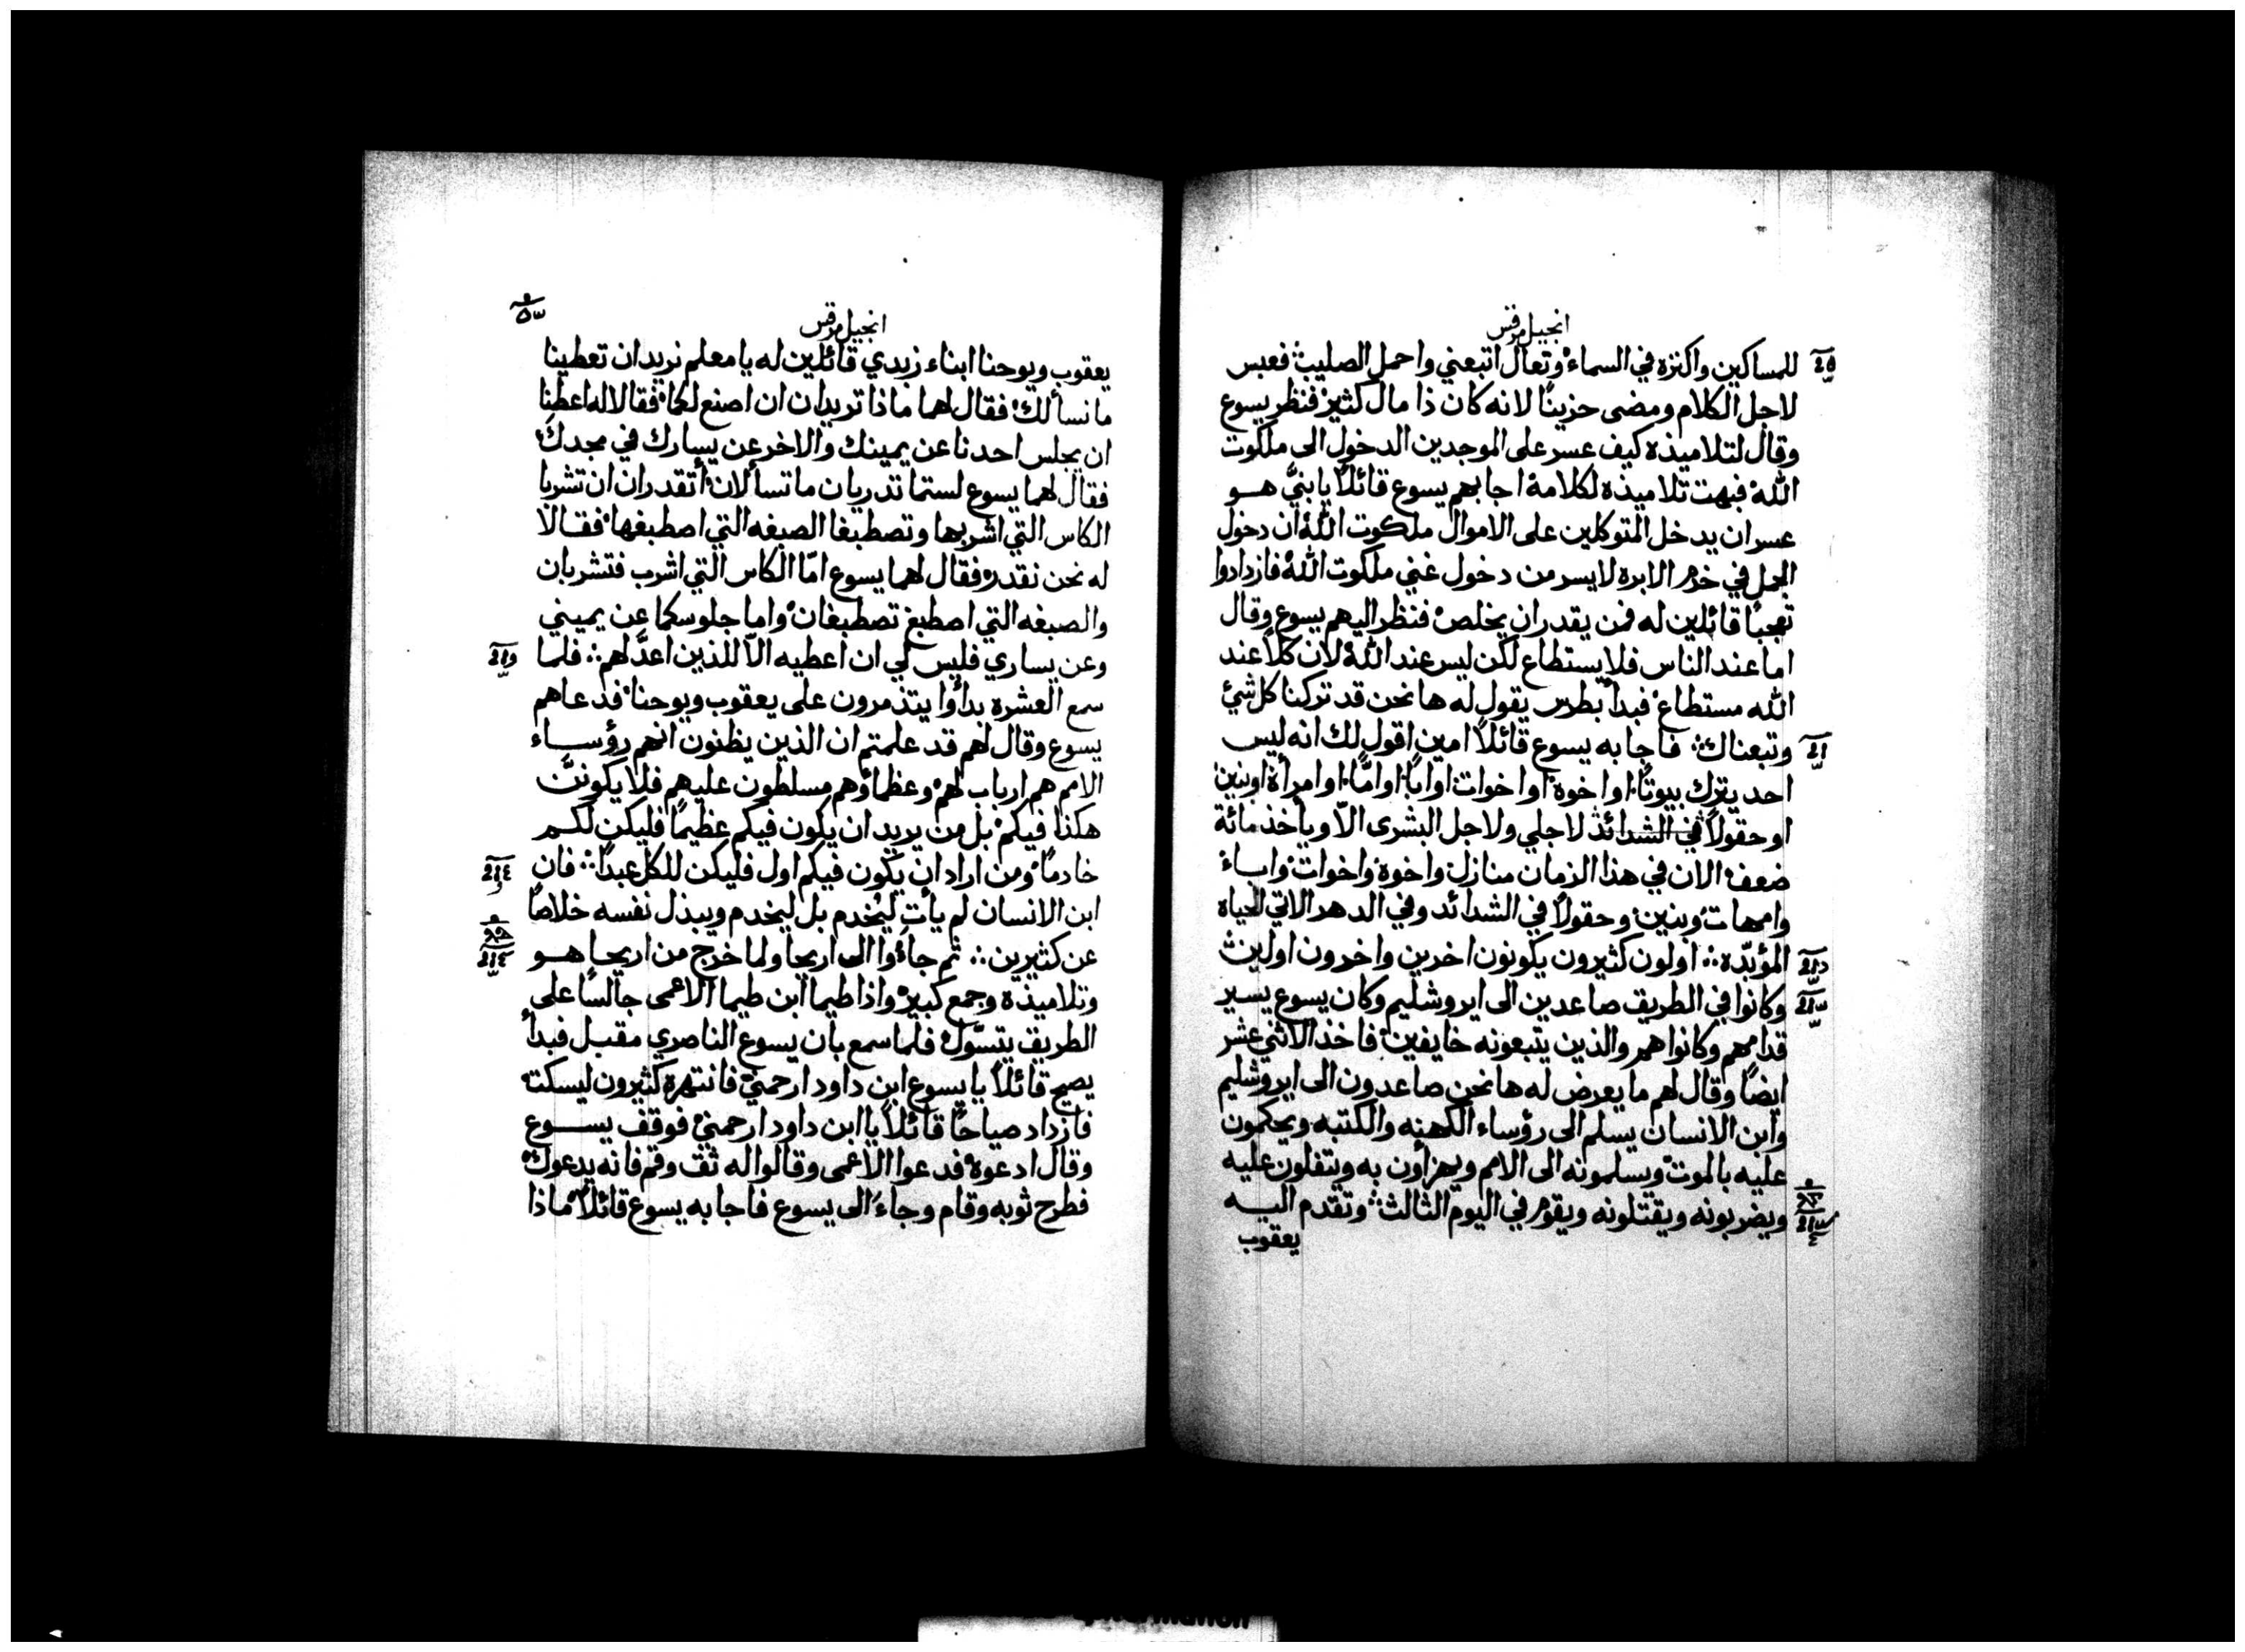 انجيل مرقس
للمساكين واكنزه في السماء وتعال اتبعني واحمل الصليب فعبس
لاجل الكلام ومضى حزينًا لانه كان ذا مال كثير فنظر يسوع
وقال لتلاميذه كيف عسر على الموجدين الدخول الى ملكوت
الله فبهت تلاميذه لكلامه اجابهم يسوع قائلًا يا بنيَّ هو
عسر ان يدخل المتوكلين على الاموال ملكوت الله ان دخول
الجمل في خرم الابره لايسر من دخول غني ملكوت الله فازدادوا
تعجبًا قائلين له فمن يقدر ان يخلص فنظر اليهم يسوع وقال
اما عند الناس فلا يستطاع لكن ليس عند الله لان كلًا عند
الله مستطاع فبدأ بطرس يقول له ها نحن قد تركنا كل شئ
وتبعناك فاجابه يسوع قائلًا امين اقول لك انه ليس
احد يترك بيوتًا او اخوة او اخوات او ابًا او امًّا او امرأة او بنين
او حقولًا في الشدائد لاجلي ولاجل البشرى الّا ويأخذ مائة
ضعف الان في هذا الزمان منازل واخوة واخوات واباء
وامهات وبنين وحقولًا في الشدائد وفي الدهر الاتي الحياه
المؤبّده اولون كثيرون يكونون اخرين واخرون اولين
وكانوا في الطريق صاعدين الى ايروشليم وكان يسوع يسير
قدامهم وكانوا هم والذين يتبعونه خايفين فاخذ الاثني عشر
ايضًا وقال لهم ما يعرض له ها نحن صاعدون الى ايروشليم
وابن الانسان يسلم الى رؤساء الكهنه والكتبه ويحكمون
عليه بالموت ويسلمونه الى الامم ويهزأون به ويتفلون عليه
ويضربونه ويقتلونه ويقوم في اليوم الثالث وتقدم اليه
يعقوب
انجيل مرقس
يعقوب ويوحنا ابناء زبدي قائلين له يا معلم نريد ان تعطينا
ما نسألك فقال لهما ماذا تريدان ان اصنع لكما فقالا له اعطنا
ان يجلس احدنا عن يمينك والاخر عن يسارك في مجدك
فقال لهما يسوع لستما تدريان ما تسألان أتقدران ان تشربا
الكاس التي اشربها وتصطبغا الصبغه التي اصطبغها فقالا
له نحن نقدر فقال لهما يسوع امّا الكاس التي اشرب فتشربان
والصبغه التي اصطبغ تصطبغان واما جلوسكما عن يميني
وعن يساري فليس لي ان اعطيه الّا للذين اعدَّ لهم فلما
سمع العشره بدأوا يتذمرون على يعقوب ويوحنا فدعاهم
يسوع وقال لهم قد علمتم ان الذين يظنون انهم رؤساء
الامم هم ارباب لهم وعظماؤهم مسلطون عليهم فلا يكوننَّ
هكذا فيكم بل من يريد ان يكون فيكم عظيمًا فليكن لكم
خادمًا ومن اراد ان يكون فيكم اول فليكن للكل عبدًا فان
ابن الانسان لم يأت ليُخدم بل ليَخدم ويبذل نفسه خلاصًا
عن كثيرين ثم جاءوا الى اريحا ولما خرج من اريحا هو
وتلاميذه وجمع كبير واذا طيما ابن طيما الاعمى جالسًا على
الطريق يتسّول فلما سمع بان يسوع الناصري مقبل فبدأ
يصيح قائلًا يا يسوع ابن داود ارحمني فانتهره كثيرون ليسكت
فازداد صياحًا قائلًا يا ابن داود ارحمني فوقف يسوع
وقال ادعوه فدعوا الاعمى وقالوا له ثق وقم فانه يدعوك
فطرح ثوبه وقام وجاء الى يسوع فاجابه يسوع قائلًا ماذا